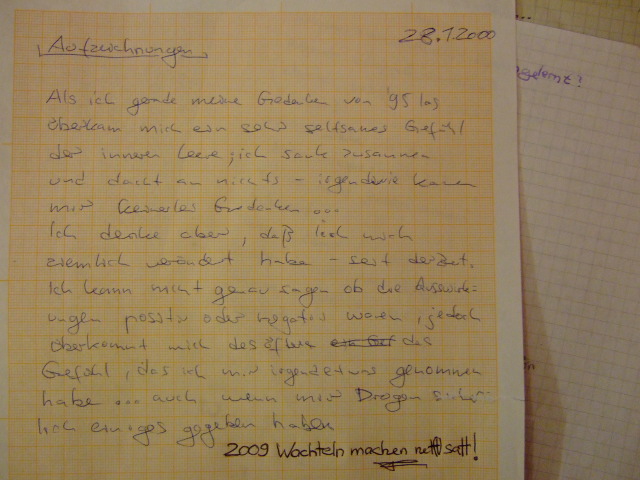 28.1.2000
Aufzeichnungen
gelernt?
Als ich gerade meine Gedanken von '95 las
überkam mich ein sehr seltsames Gefühl
der inneren Leere; ich sank zusammen
und dacht an nichts - irgendwie kamen
mir keinerlei Gedanken ...
Ich denke aber, daß ich mich
ziemlich verändert habe - seit der Zeit.
Ich kann nicht genau sagen ob die Auswirk=
ungen positiv oder negativ waren, jedoch
überkommt mich des öfteren das
Gefühl, das ich mir irgendetwas genommen
habe ... auch wenn mir Drogen sicher
lich einiges gegeben haben
2009 Wachteln machen nett satt!